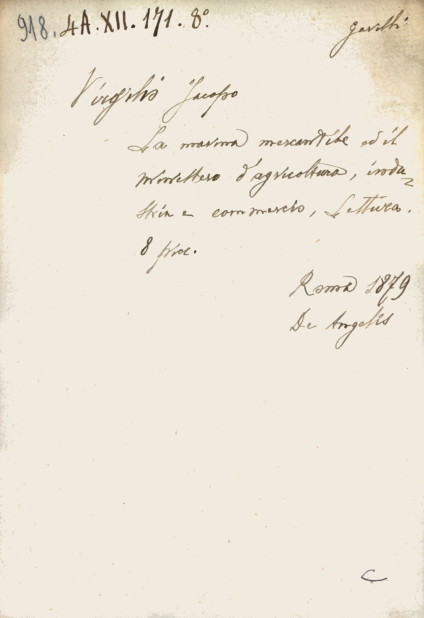 918. 4A. XII. 171. 8.°
Virgilio Jacopo
La marina mercantile ed il
ministero d'agricoltura, indu=
stria e commercio, Lettura.
8 picc.
Roma 1879
De Angelis
C